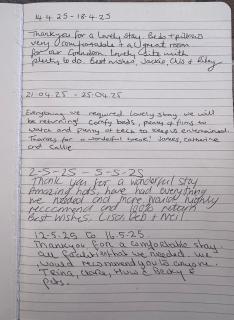 14.4.25-18.4.25
Thankyou for a lovely stay. Beds + pillows
very comfortable + a great room
for our Golden. Lovely site with
plenty to do. Best wishes, Jackie, Chis & Riley
21.04.25 - 25.04.25
Everything we required lovely stay we will
be returning! Comfy beds, plenty of films to
watch and plenty of tech to keep us entertained.
Thanks for a wonderful week! James, Catherine
and Callie
2-5-25 - 5-5-25
Thank you for a wonderful stay
Amazing hosts have had everything
we needed and more would highly
reccomend and 100% return
Best Wishes Lisa, Deb + Neil
12.5.25 to 16.5.25
Thankyou for a comfortable stay
all facilities that we needed. we
would recommend you to anyone.
Trina, Claire, Huw & Becky &
pets.